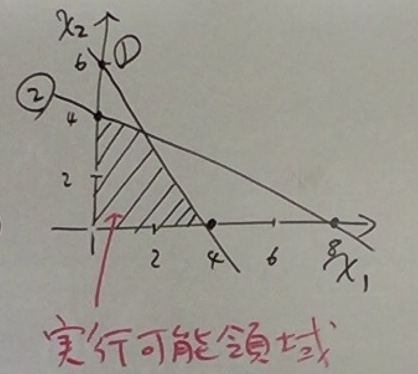 x₂
6
①
②
4
2
2
4
6
8
x₁
実行可能領域